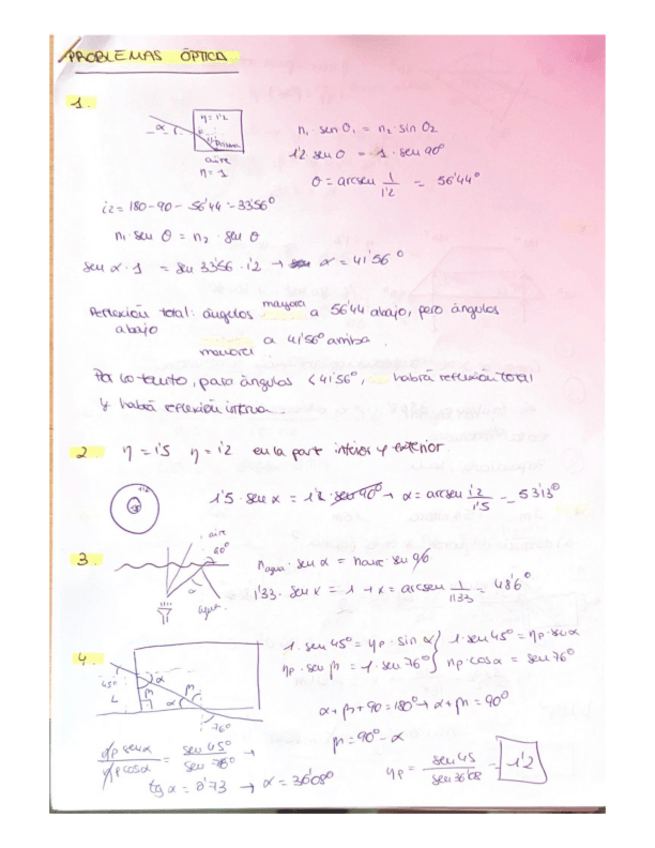 PROBLEMAS ÓPTICA
1.
η = 1'2
α
aire
η = 1
n₁ · sen O₁ = n₂ · sin O₂
1'2 sen O = 1 · sen 90º
O = arcsen 1/1'2 = 56'44º
i2 = 180 - 90 - 56'44 = 33'56º
n₁ · sen θ = n₂ · sen θ
sen α · 1 = sen 33'56 · 1'2 → α = 41'56º
Reflexión total: ángulos mayores a 56'44 abajo, pero ángulos
abajo
menores a 41'56º arriba.
Por lo tanto, para ángulos < 41'56º, habrá reflexión total
y habrá reflexión interna.
2. η = 1'5 η = 1'2 en la part interior y exterior.
1'5 · sen α = 1'2 · sen 90º → α = arcsen 1'2/1'5 = 53'13º
3.
aire
60º
α
agua
n agua · sen α = n aire · sen 90
1'33 · sen x = 1 → x = arcsen 1/1'33 = 48'6º
4.
45º
α
β
β
α
76º
1 · sen 45º = ηp · sin α } 1 · sen 45º = ηp · sen α
ηp · sen β = 1 · sen 76º } ηp · cos α = sen 76º
α + β + 90 = 180º → α + β = 90º
β = 90º - α
ηp sen α / ηp cos α = sen 45º / sen 76º →
tg α = 0'73 → α = 36'08º
ηp = sen 45 / sen 36'08 = 1'2